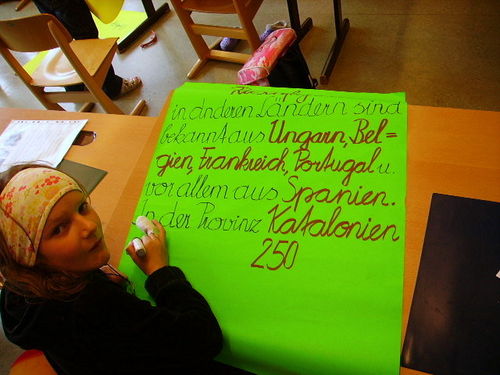 in anderen Ländern sind
bekannt aus Ungarn, Bel=
gien, Frankreich, Portugal u.
vor allem aus Spanien.
In der Provinz Katalonien
250